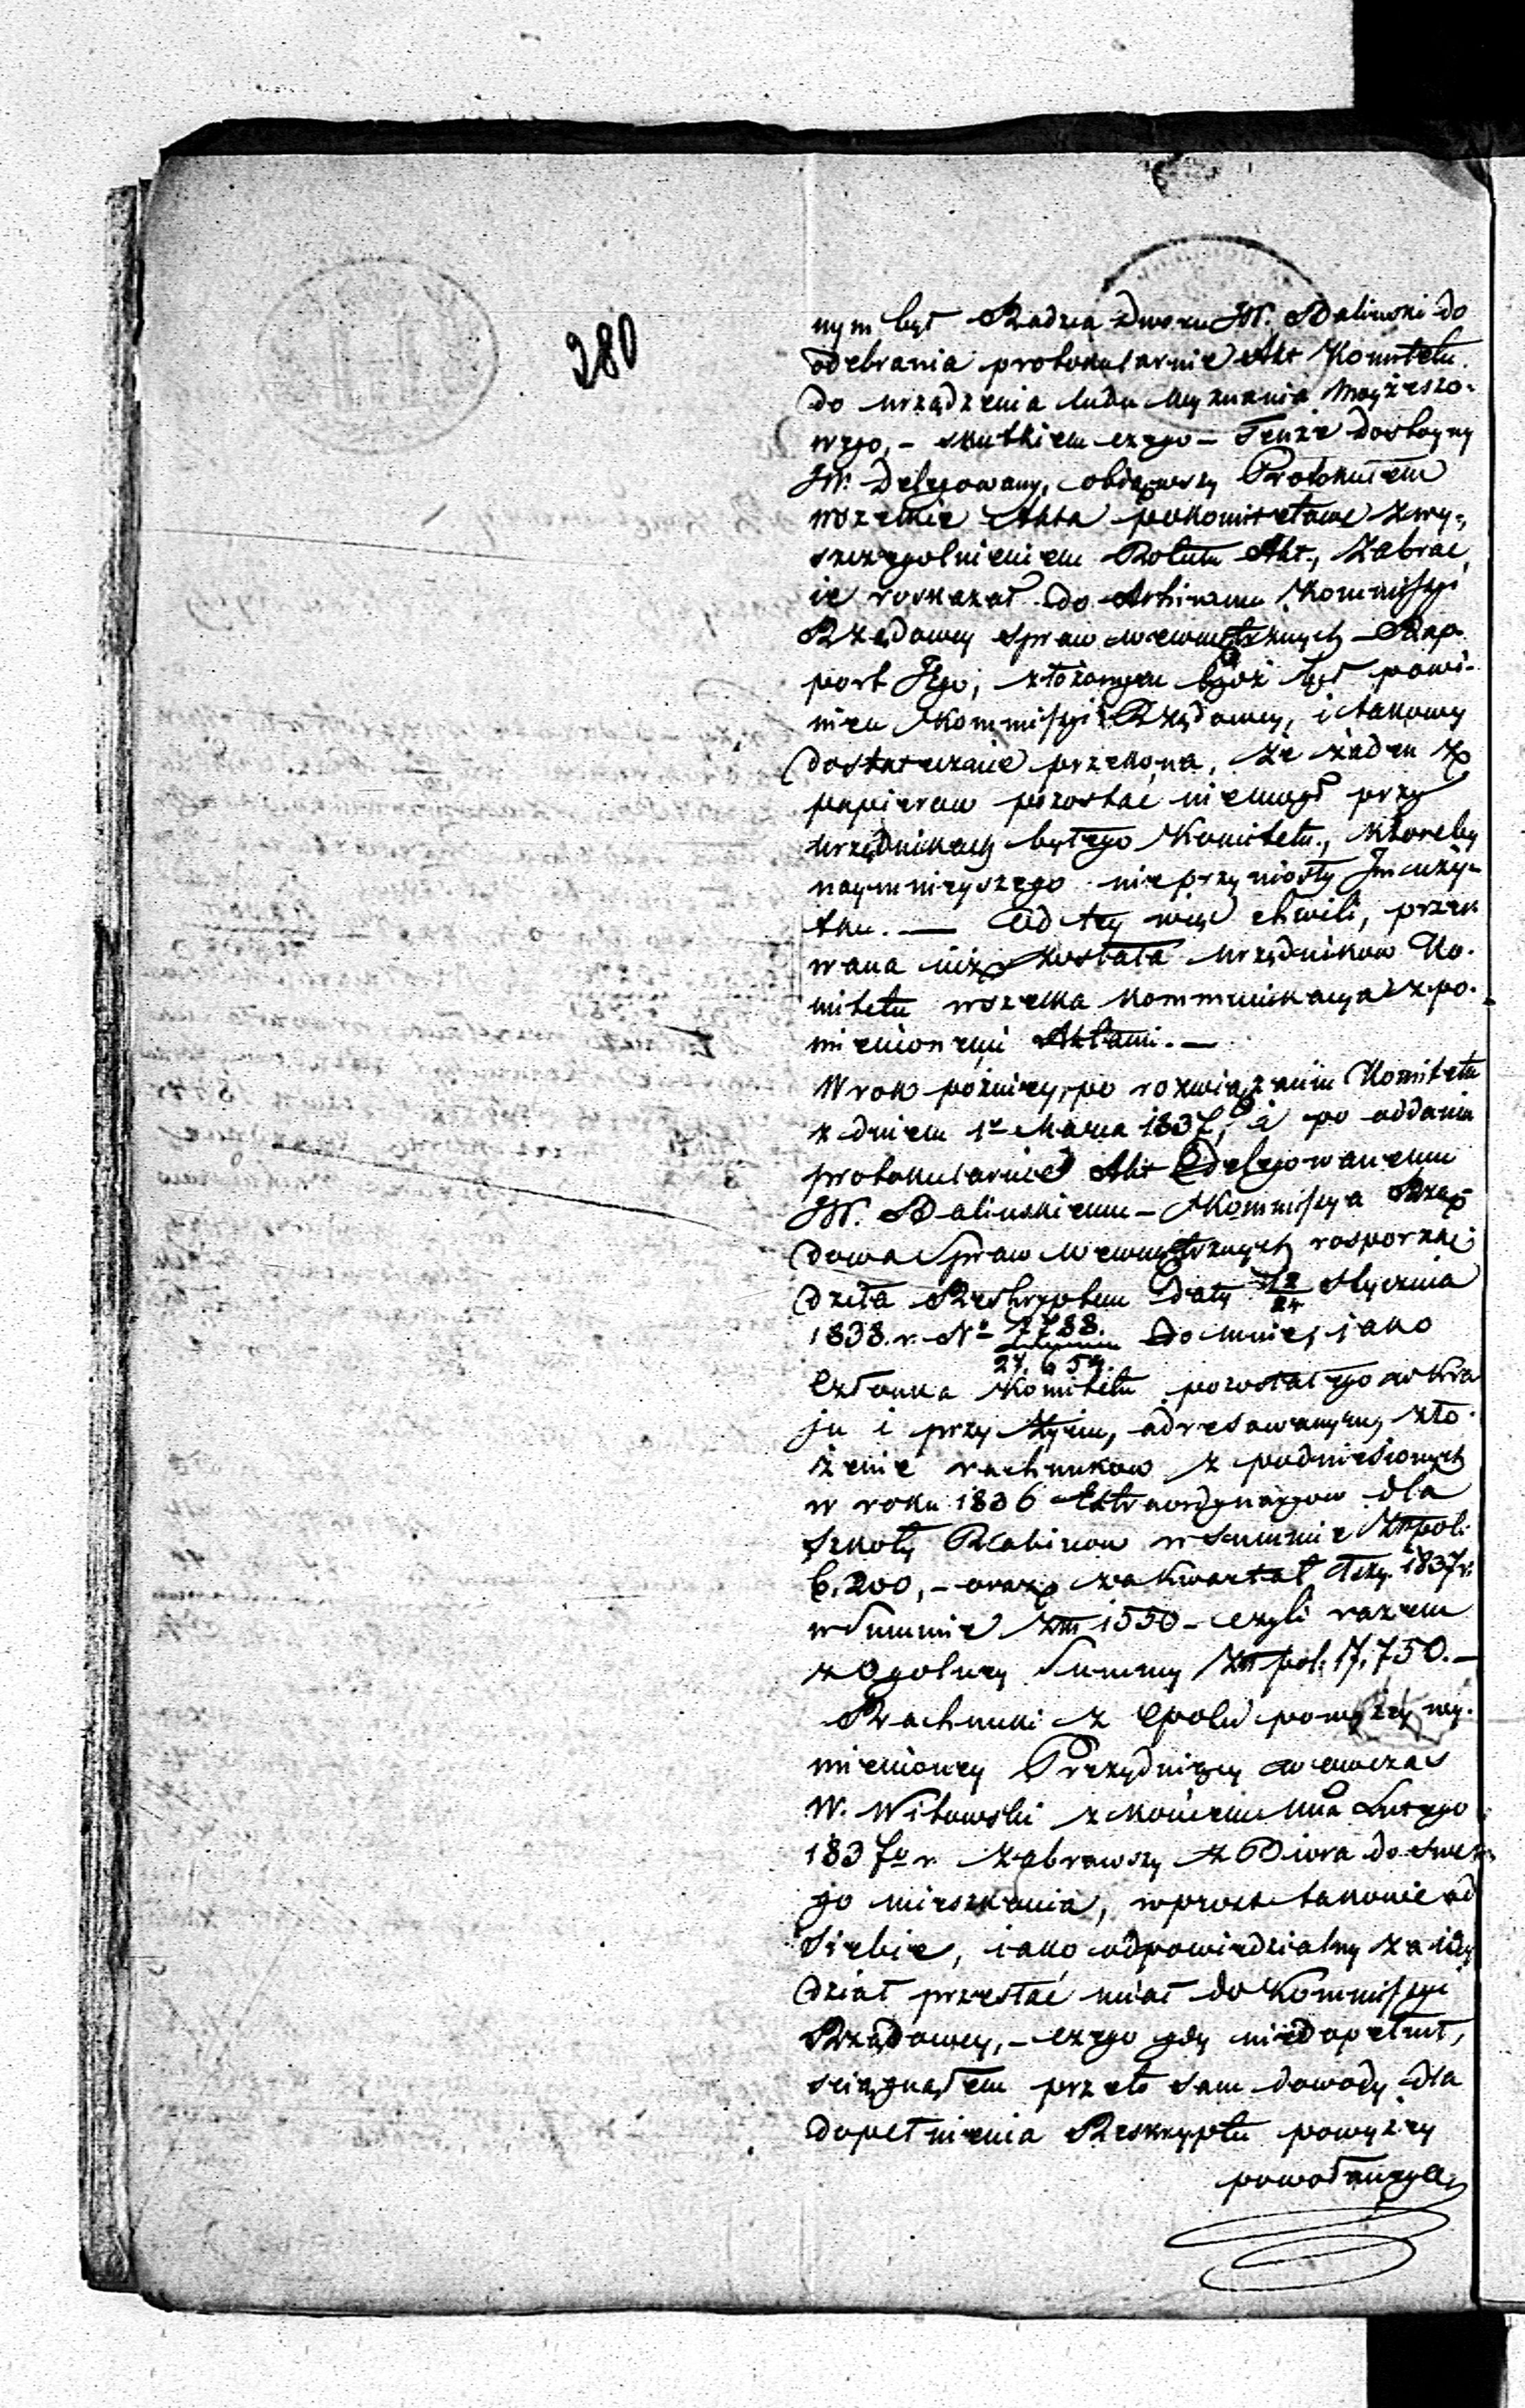 280
nym był Radzca Dworu JW. Baliński do
odebrania protokularnie Akt Komitetu
do urządzenia ludu Wyznania Moyżeszo-
wego, – skutkiem czego – Tenże dostoyny
JW. Delegowany, obiąwszy Protokułem
wszelkie Akta pokomitetowe z wy-
szczegolnieniem Rotulu Akt, zabrać
ie roskazał do Archiwum Kommissyi
Rządowey Spraw Wewnętrznych – Rap
port Jego, złożonym być był powi-
nien Kommissyi Rządowey, i takowy
dostatecznie przekona, że żaden z
papierow pozostać niemogł przy
urzędnikach byłego Komitetu, ktoreby
naymnieyszego nieprzyniosły Jm użyt-
ku. — Od tey więc chwili, przer
wana iuż została urzędnikow Ko-
mitetu wszelka kommunikacya z po-
mienionemi Aktami. —
W rok poźniey, po rozwiązaniu Komitetu
z dniem 1o Marca 1837, i po oddaniu
protokularnie Akt Delegowanemu
JW. Balinskiemu – Kommissya Rzą-
dowa Spraw Wewnętrznych rosporzą-
dziła Reskryptem daty 12/24 Stycznia
1838. r. No 1788./27,654. do mnie, jako
Członka Komitetu pozostałego w Kra
ju i przy życiu, adresowanym, zło-
żenie rachunkow z podniesionych
w roku 1836 Extraordynaryow dla
Szkoły Rabinow w Summie Złpol.
6,200, – oraz za kwartał 1szy 1837 r.
w Summie Złp 1550 – czyli razem
z Ogolney Summy Złpol. 17,750. –
Rachunki z Epoki powyżey wy-
mienioney Prezyduiący wowczas
W. Witowski z końcem Mca Lutego
1837o r. zabrawszy z Biura do swe-
go mieszkania, wprost takowe od
Siebie, iako odpowiedzialny za
dział przesłać miał do Kommissyi
Rządowey, – czego gdy niedopełnił,
sciągnąłem przeto sam dowody dla
dopełnienia Reskryptu powyżey
powołanego